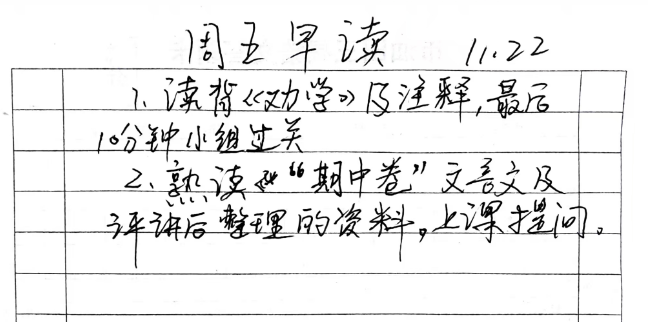 周五早读 11.22
1、读背《劝学》及注释,最后
10分钟小组过关
2、熟读“期中卷”文言文及
评讲后整理的资料。上课提问。